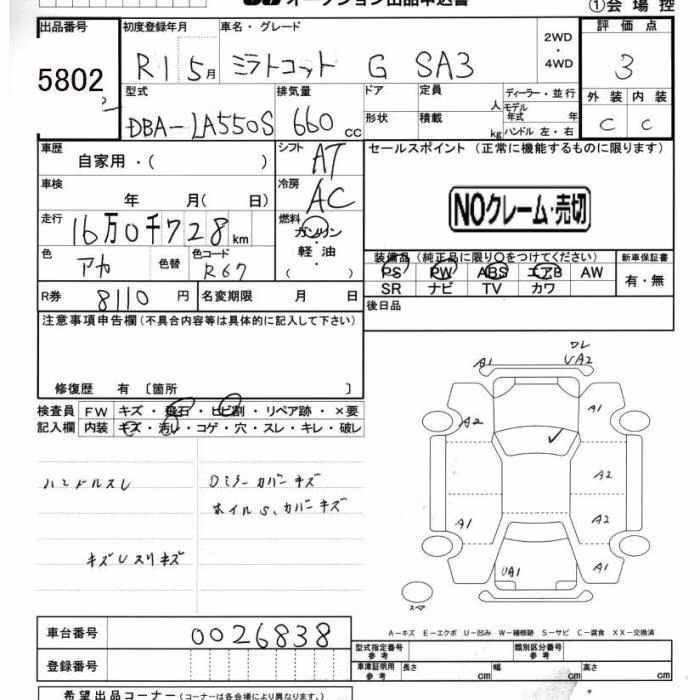 オークション出品申込書
①会場控
出品番号 初度登録年月 車名・グレード 2WD・4WD 評価点
5802 R1 5月 ミラトコット G SA3 3
型式 排気量 ドア 定員 人 ディーラー・並行 外装 内装
モデル年式 年
DBA-LA550S 660cc 形状 積載 kg ハンドル 左・右 C C
車歴 自家用・( ) シフト AT セールスポイント (正常に機能するものに限ります)
車検 年 月( 日) 冷房 AC
NOクレーム・売切
走行 16万0千728km 燃料 ガソリン
軽・油
( ・ )
色 アカ 色替 色コード R67
装備品 (純正品に限り○をつけてください) 新車保証書
PS PW ABS エアB AW 有・無
SR ナビ TV カワ
R券 8110円 名変期限 月 日 後日品
注意事項申告欄 (不具合内容等は具体的に記入して下さい)
修復歴 有 〔箇所 〕
検査員 FW キズ・飛石・ヒビ割・リペア跡・×要
記入欄 内装 キズ・汚レ・コゲ・穴・スレ・キレ・破レ
ハンドルスレ
ミラーカバーキズ
ホイルS、カバーキズ
キズUスリキズ
ワレ
A1 UA2
A2 A1
A2
A1 A2
UA1 A1
スペア
A-キズ E-エクボ U-凹み W-補修跡 S-サビ C-腐食 XX-交換済
車台番号 0026838
型式指定番号 参考 類別区分番号 参考
登録番号
車庫証明用 参考 長さ cm 幅 cm 高さ cm
希望出品コーナー (コーナーは各会場により異なります。)